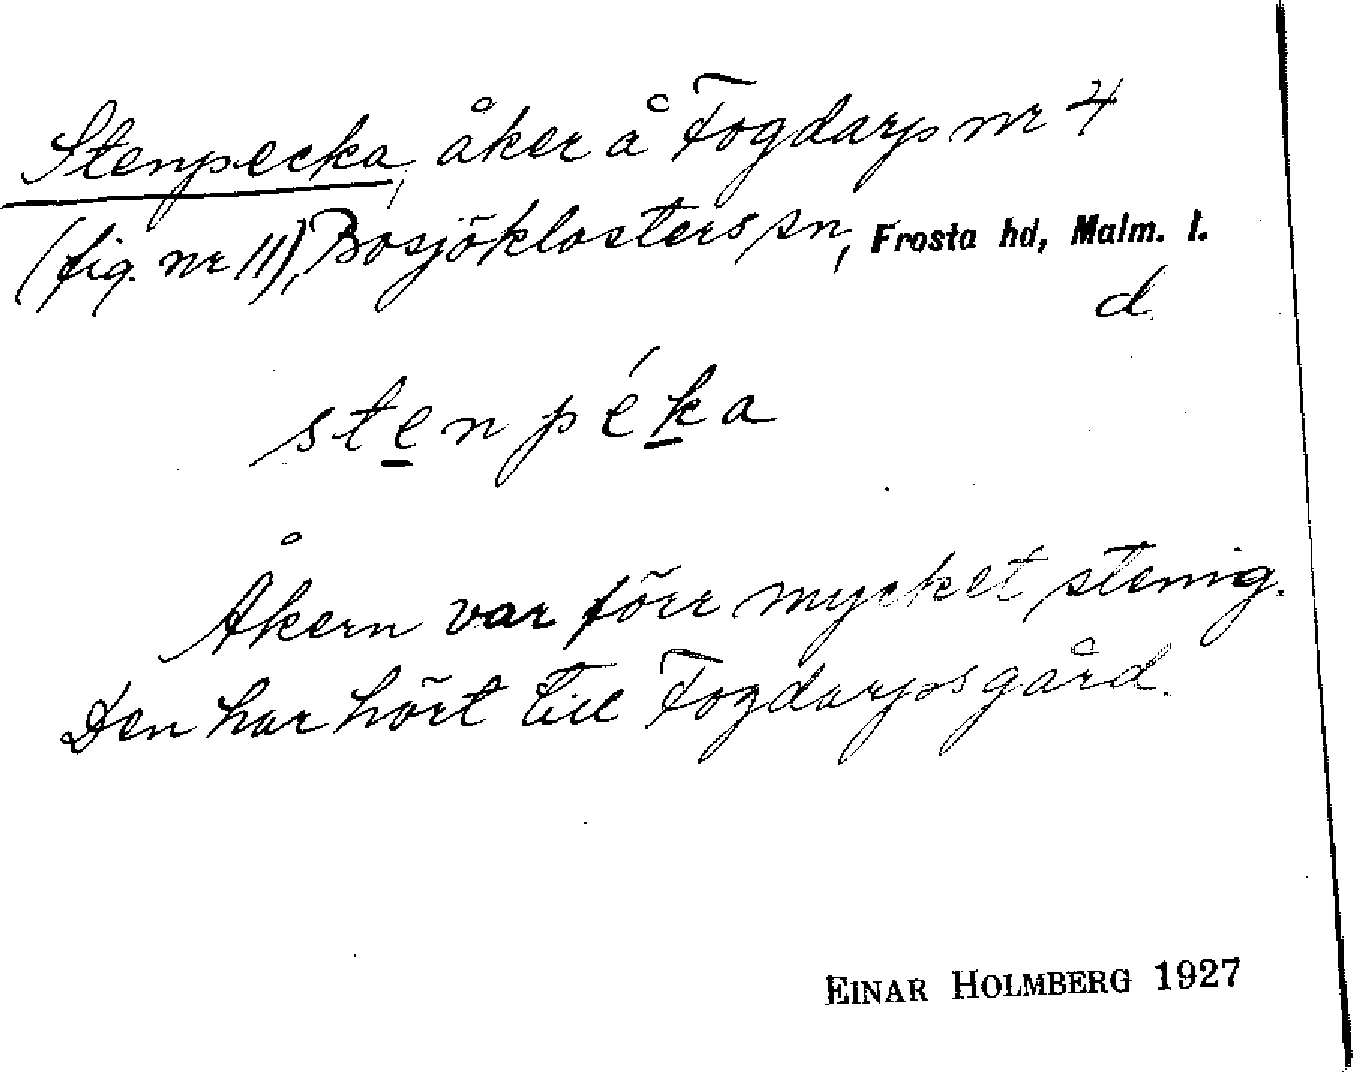 Stenpecka, åker å Fogdarps nr 4
(fig. nr 11), Bosjöklosters sn, Frosta hd, Malm. l.
d.
stenpéka
Åkern var förr mycket stenig.
Den har hört till Fogdarpsgård.
EINAR HOLMBERG 1927